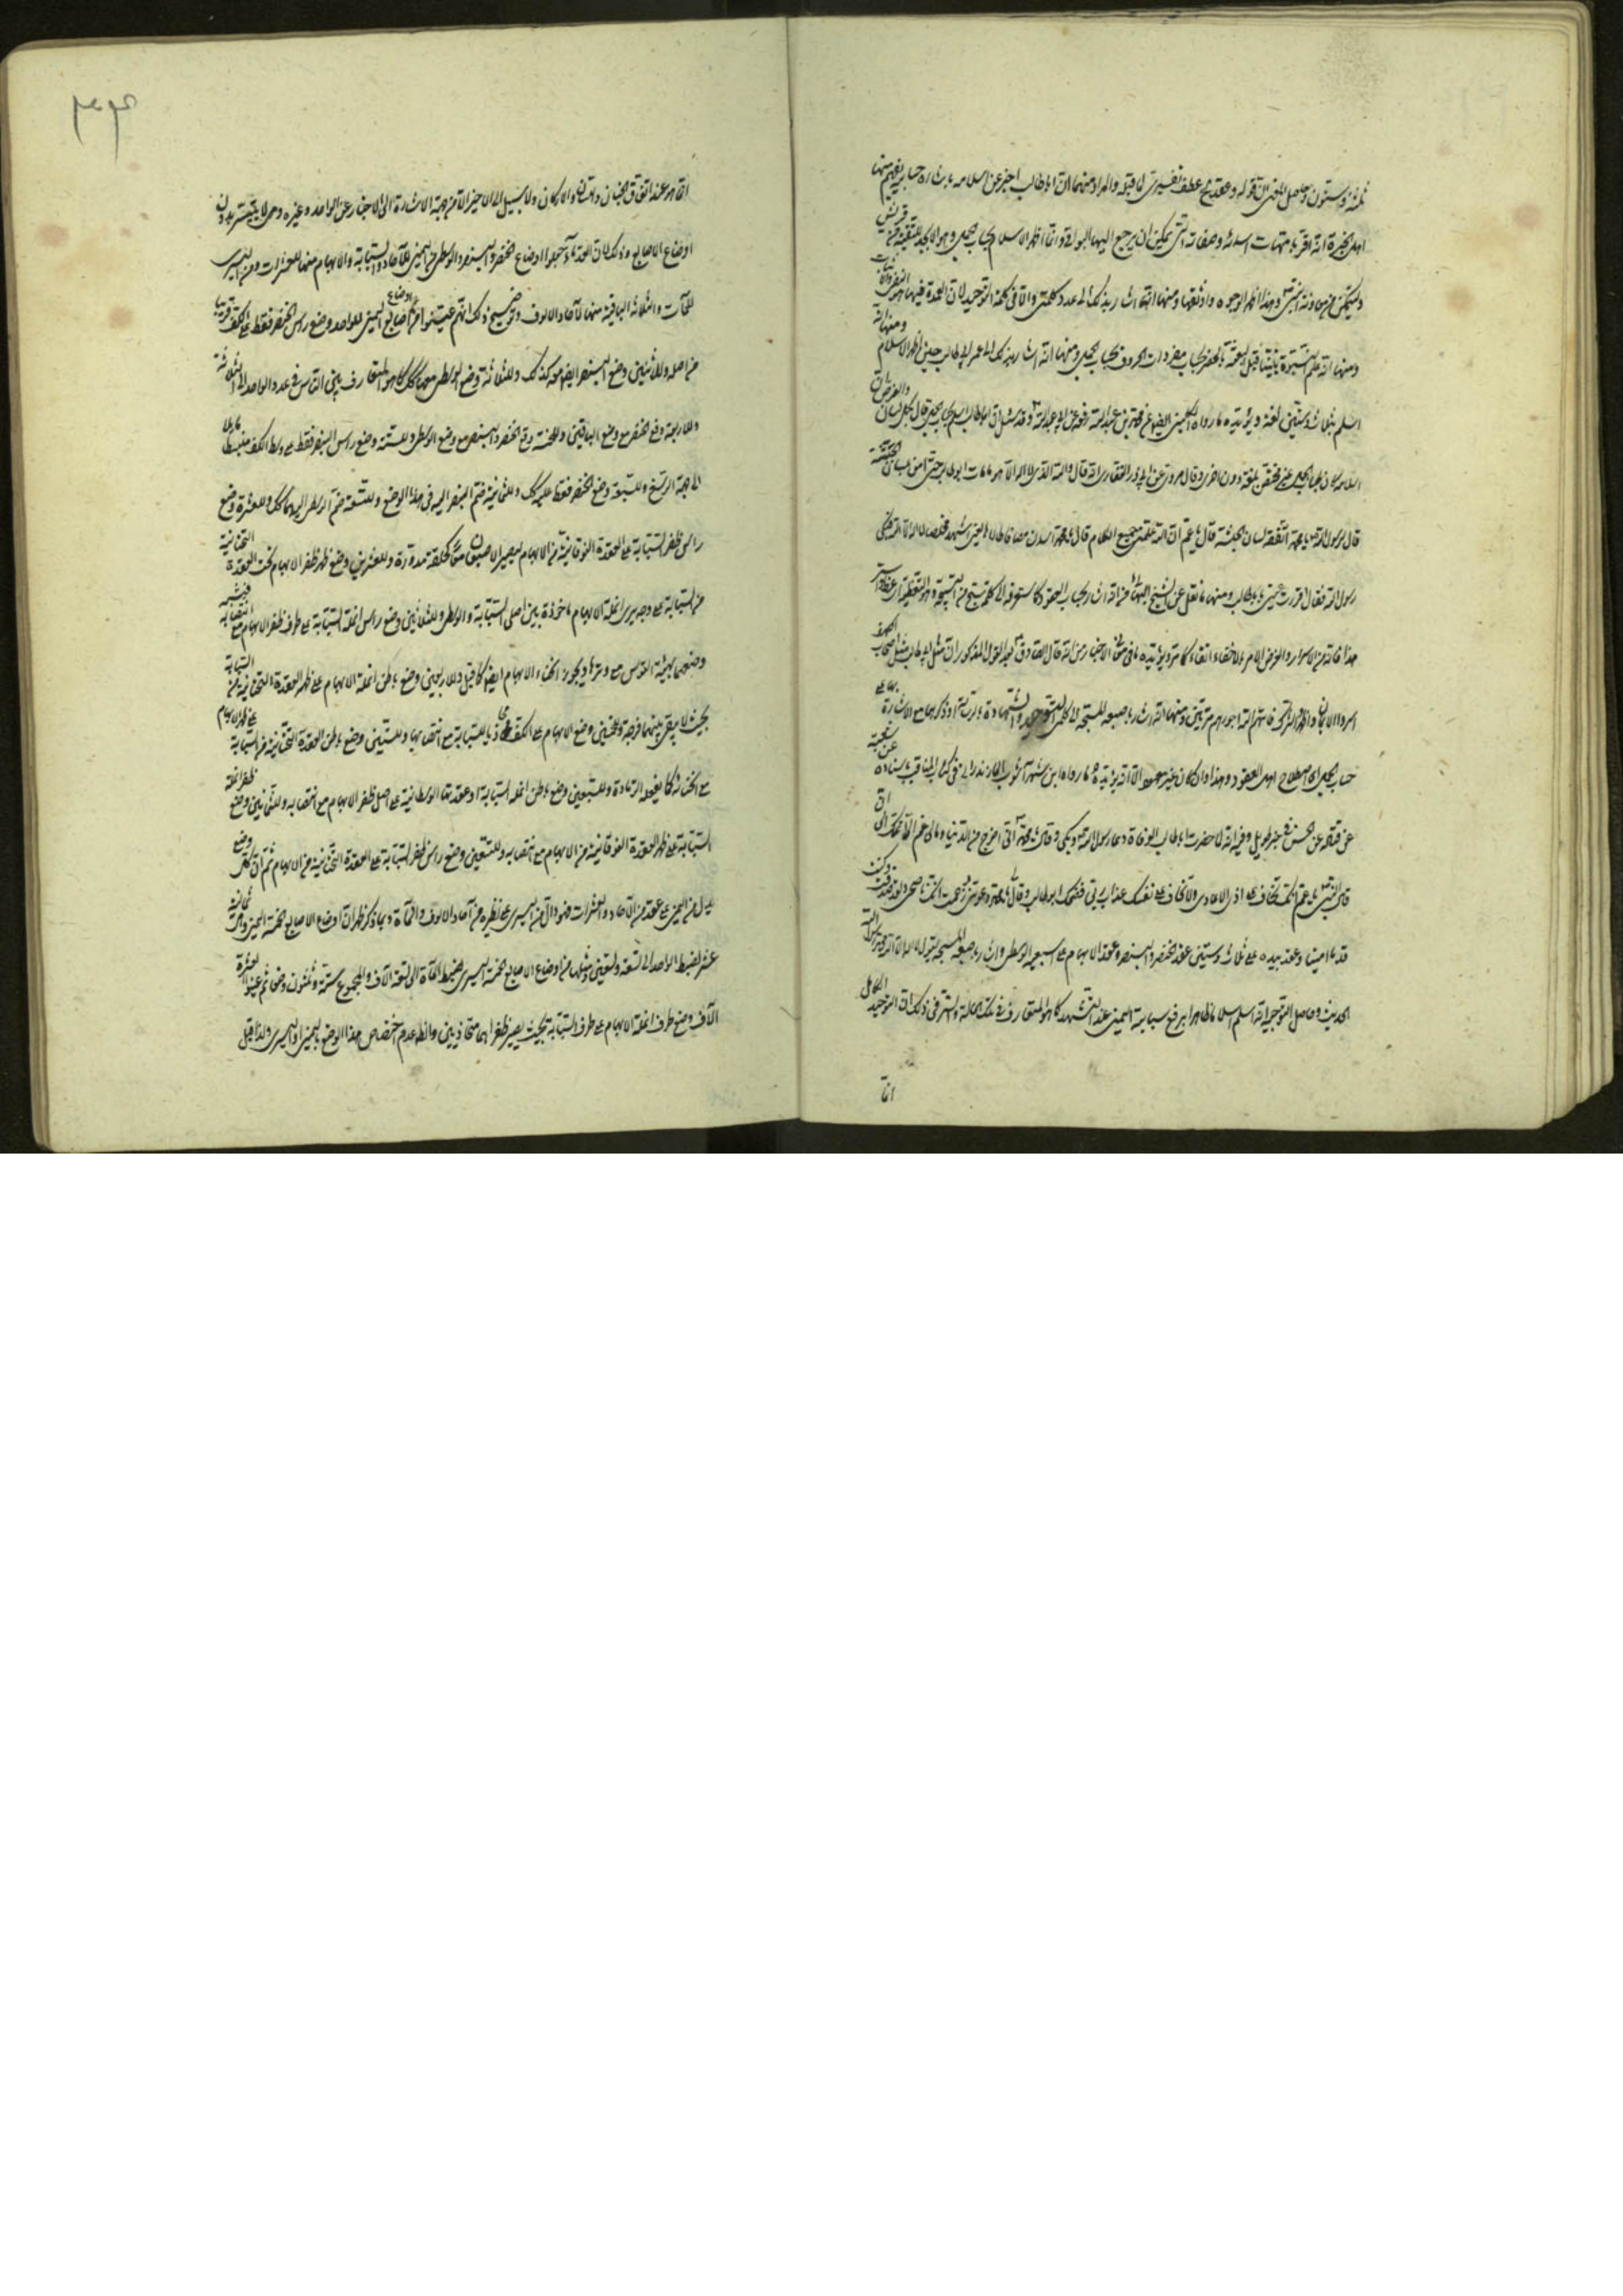 ثلثة وستون وحاصل المعنى ان قوله وعقد بيده عطف تفسيرى لما قبله والمراد منهما ان اباطالب اخبر عن اسلامه باشارة حسابية يفهم منها
اهل الخبرة انه اقر بامهات اسمائه وصفاته التى يمكن ان يرجع اليها البواقى وانما اظهر الاسلام بحساب الجمل وهو الابجد للتقية من قريش
وليتمكن من معاونة النبى ص وهذا اظهر الوجوه واوثقها ومنها انه اشار بذلك الى عدد كلمتى والا فى كلمة التوحيد لان العمدة فيها هو النفى والاثبات
ومنها انه علم نبوة نبينا قبل البعثة بالجفر بحساب مفردات الحروف بحساب الجمل ومنها انه اشار بذلك الى عمر ابى طالب حين اظهر الاسلام ومنها انه
اسلم بثلاث وستين لغة ويؤيده ما رواه الكلينى ايضا عن محمد بن عبد الله رفعه عن ابى عبد الله ع قال ان اباطالب اسلم بحساب الجمل قال بكل لسان والغرض ان
اسلامه كان بحساب الجمل غير مختص بلغة دون اخرى وقال مروى عن ابى ذر الغفارى انه قال والله الذى لا اله الا هو ما مات ابوطالب حتى امن بلسان الحبشة
قال لرسول الله ص يا محمد اتفقه لسان الحبشة قال يا عم ان الله علمنى جميع الكلام قال يا محمد اسدن ملصا قاطالاها يعنى اشهد مخلصا لا اله الا الله فبكى
رسول الله فقال اقر الله عينى بابى طالب ومنها ما نقل عن الشيخ البهائى من انه اشار بحساب العقود كما ستعرفه الى كلمة سبح من التسبيحة وهو التغطية اى غط واستر
هذا فانه من الاسرار والغرض الامر بالاخفاء اتقاء كما مر ويؤيده ما فى الاخبار من انه قال الصادق ع بعد القول المذكور ان مثل ابى طالب مثل اصحاب الكهف
اسروا الايمان واظهروا الشرك فاتاهم الله اجورهم مرتين ومنها انه اشار باصبعه المسبحة الى كلمتى التوحيد والشهادة
حساب الجمل اى اصطلاح اهل العقود وهذا وان كان غير معهود الا انه يؤيده ما رواه ابن شهرآشوب المازندرانى فى كتاب المناقب باسناده عن شعبة
عن قتادة عن الحسن فى خبر طويل وفيه انه لما حضرت اباطالب الوفاة دعا رسول الله ص وبكى وقال يا محمد انى اخرج من الدنيا وما لى غم الا غمك الى ان
قال النبى ص يا عم انك تخاف على اذى الاعادى ولا تخاف على نفسك عذاب ربى فضحك ابوطالب وقال يا محمد دعوتنى وزعمت انك ناصحى ولقد صدقت وكنت
قدما امينا وعقد بيده على ثلاث وستين عقد الخنصر والبنصر وعقد الابهام على اصبعه الوسطى واشار باصبعه المسبحة يقول لا اله الا الله محمد رسول الله
الحديث وحاصل التوجيه انه اسلم اسلاما ظاهرا برفع سبابته اليمنى عند التشهد كما هو المتعارف فى تلك الحالة والسر فى ذلك ان التوحيد الكامل
انما
٣٣٤
انما هو عند اتفاق الجنان واللسان والاركان ولا سبيل الى الاخير الا من جهة الاشارة الى الاخبار عن الواحد وغيره وهى لا يتيسر بدون
اوضاع الاصابع وذلك لان القدماء جعلوا اوضاع الخنصر والبنصر والوسطى من اليمنى للآحاد والسبابة والابهام منها للعشرات ومن اليسرى
للمآت والثلاثة الباقية منها لآحاد الالوف وتوضيح ذلك انهم عينوا من اوضاع اصابع اليمنى للواحد وضع راس الخنصر فقط على الكف قريبا
من اصله وللاثنين وضع البنصر ايضا معه كذلك وللثلاثة وضع الوسطى معهما كذلك كما هو المتعارف بين الناس فى عدد الواحد الى الثلاثة
وللاربعة رفع الخنصر مع وضع الباقيتين وللخمسة رفع الخنصر والبنصر مع وضع الوسطى وللستة وضع راس البنصر فقط على وسط الكف
الى جهة الرسغ وللسبعة وضع الخنصر فقط عليه كذلك وللثمانية ضم البنصر اليه فى هذا الوضع وللتسعة ضم الوسطى اليهما كذلك وللعشرة وضع
راس ظفر السبابة على العقدة الفوقانية من الابهام ليصير الاصبعان معا كحلقة مدورة وللعشرين وضع ظهر ظفر الابهام تحت العقدة التحتانية
من السبابة على وجه يرى انملة الابهام ماخوذة بين اصلى السبابة والوسطى وللثلاثين وضع راس انملة السبابة على طرف ظفر الابهام مع انتصابه فيشبه
وضعهما بهيئة القوس مع وترها ويجوز انحناء الابهام ايضا كما قيل وللاربعين وضع باطن انملة الابهام على ظهر العقدة التحتانية من السبابة
بحيث لا يبقى بينهما فرجة وللخمسين وضع الابهام على الكف محاذيا للسبابة مع انتصابها وللستين وضع باطن العقدة التحتانية من السبابة على ظهر الابهام
مع انحنائه كما يفعله الرماة وللسبعين وضع باطن انملة السبابة او عقدتها الوسطانية على اصل ظفر الابهام مع انتصابه وللثمانين وضع ظفر انملة
السبابة على ظهر العقدة الفوقانية من الابهام مع انتصابه وللتسعين وضع راس ظفر السبابة على العقدة التحتانية من الابهام ثم ان كل وضع
يدل من اليمنى على عقد من الآحاد والعشرات فهو دال من اليسرى على نظيره من آحاد الالوف والمآة وبما ذكر ظهر ان اوضاع الاصابع الخمسة اليمنى ثمانية
عشر لضبط الواحد الى تسعة وتسعين ومثلها من اوضاع الاصابع الخمسة اليسرى لضبط المآة الى تسعة آلاف والمجموع ستة وثلثون وضعا ثم عينوا لعشرة
آلاف وضع طرف انملة الابهام على طرف السبابة بحيث يصير ظفراهما متحاذيين والظ عدم اختصاص هذا الوضع باليمنى او اليسرى ولذا قيل